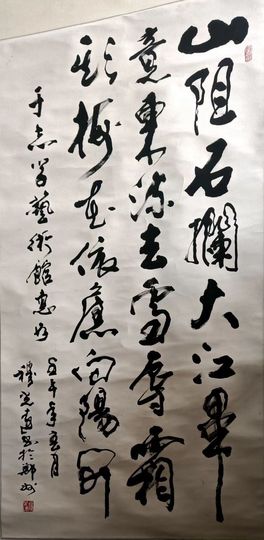 山阻石攔大江畢
竟東流去雪辱霜
欺梅花依舊向陽開
于志学藝術館惠存
午年月
於鄭州